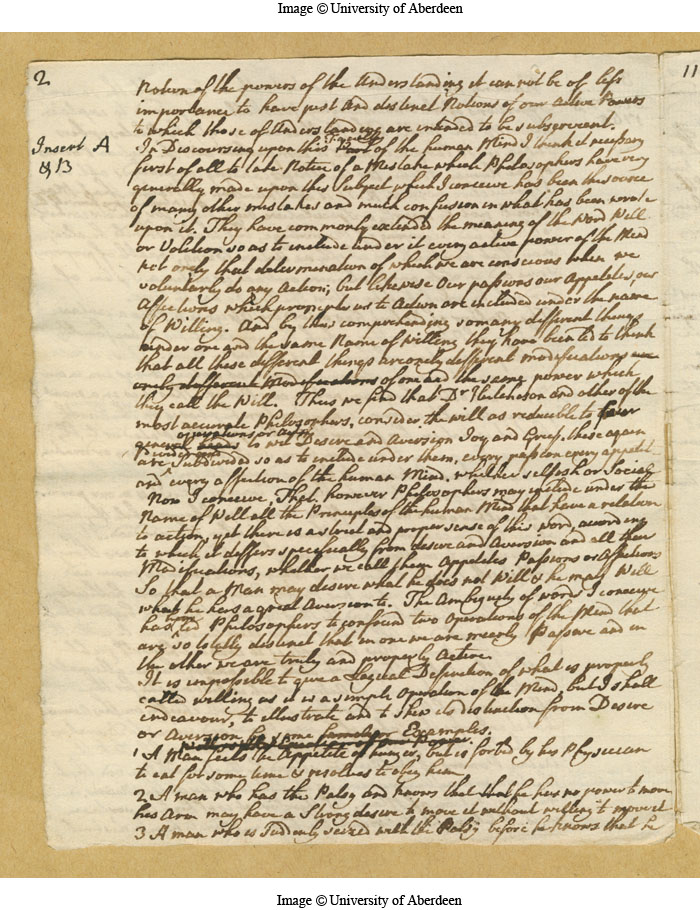 Image © University of Aberdeen
2
11
Notion of the powers of the Understanding it cannot be of less
importance to have just and distinct Notions of our Active Powers
to which those of Understanding are intended to be subservient.
Insert A
& B
In Discoursing upon this of the human Mind I think it necessary
first of all to take Notice of a Mistake which Philosophers have very
generally made upon this Subject which I conceive has been the source
of many other mistakes and much confusion in what has been wrote
upon it. They have commonly extended the meaning of the Word Will
or Volition so as to include under it every active power of the Mind
not onely that determination of which we are conscious when we
voluntarly do any Action; but likewise Our passions our Appetites, our
Affections which prompt us to Action are included under the name
of Willing. And by thus comprehending so many different things
under one and the same Name of Willing they have been led to think
that all these different things are onely different modifications
onely different Modifications of one and the same power which
they call the Will. Thus we find that Dr Hutcheson and other of the
most accurate Philosophers, consider the will as reducible to four
operations or acts
general heads to wit Desire and Aversion Joy and Grief, these again
are Subdivided so as to include under them, every passion every appetite
and every affection of the human Mind, whether selfish or Social
Now I conceive, That however Philosophers may include under the
Name of Will all the Principles of the human Mind that have a relation
to action, yet there is a strict and proper sense of this word, according
to which it differs specifically from desire and Aversion and all their
Modifications, whether we call them Appetites Passions or Affections
So that a Man may desire what he does not Will & he may Will
what he has a great Aversion to. The Ambiguity of words I conceive
has led Philosophers to confound two Operations of the Mind that
are so totally distinct that in one we are mearly Passive and in
the other we are truly and properly Active.
It is impossible to give a Logical Definition of what is properly
called willing as it is a simple Operation of the Mind, but I shall
endeavour, to illustrate and to shew its distinction from Desire
or Aversion by some familiar Examples.
1 A Man feels the Appetite of hunger, but is forbid by his Physician
to eat for some time & resolves to obey him
2 A man who has the Palsy and knows that that he has no power to move
his Arm may have a Strong desire to move it without willing to move it
3 A man who is Suddenly seized with the Palsy before he knows that he
Image © University of Aberdeen